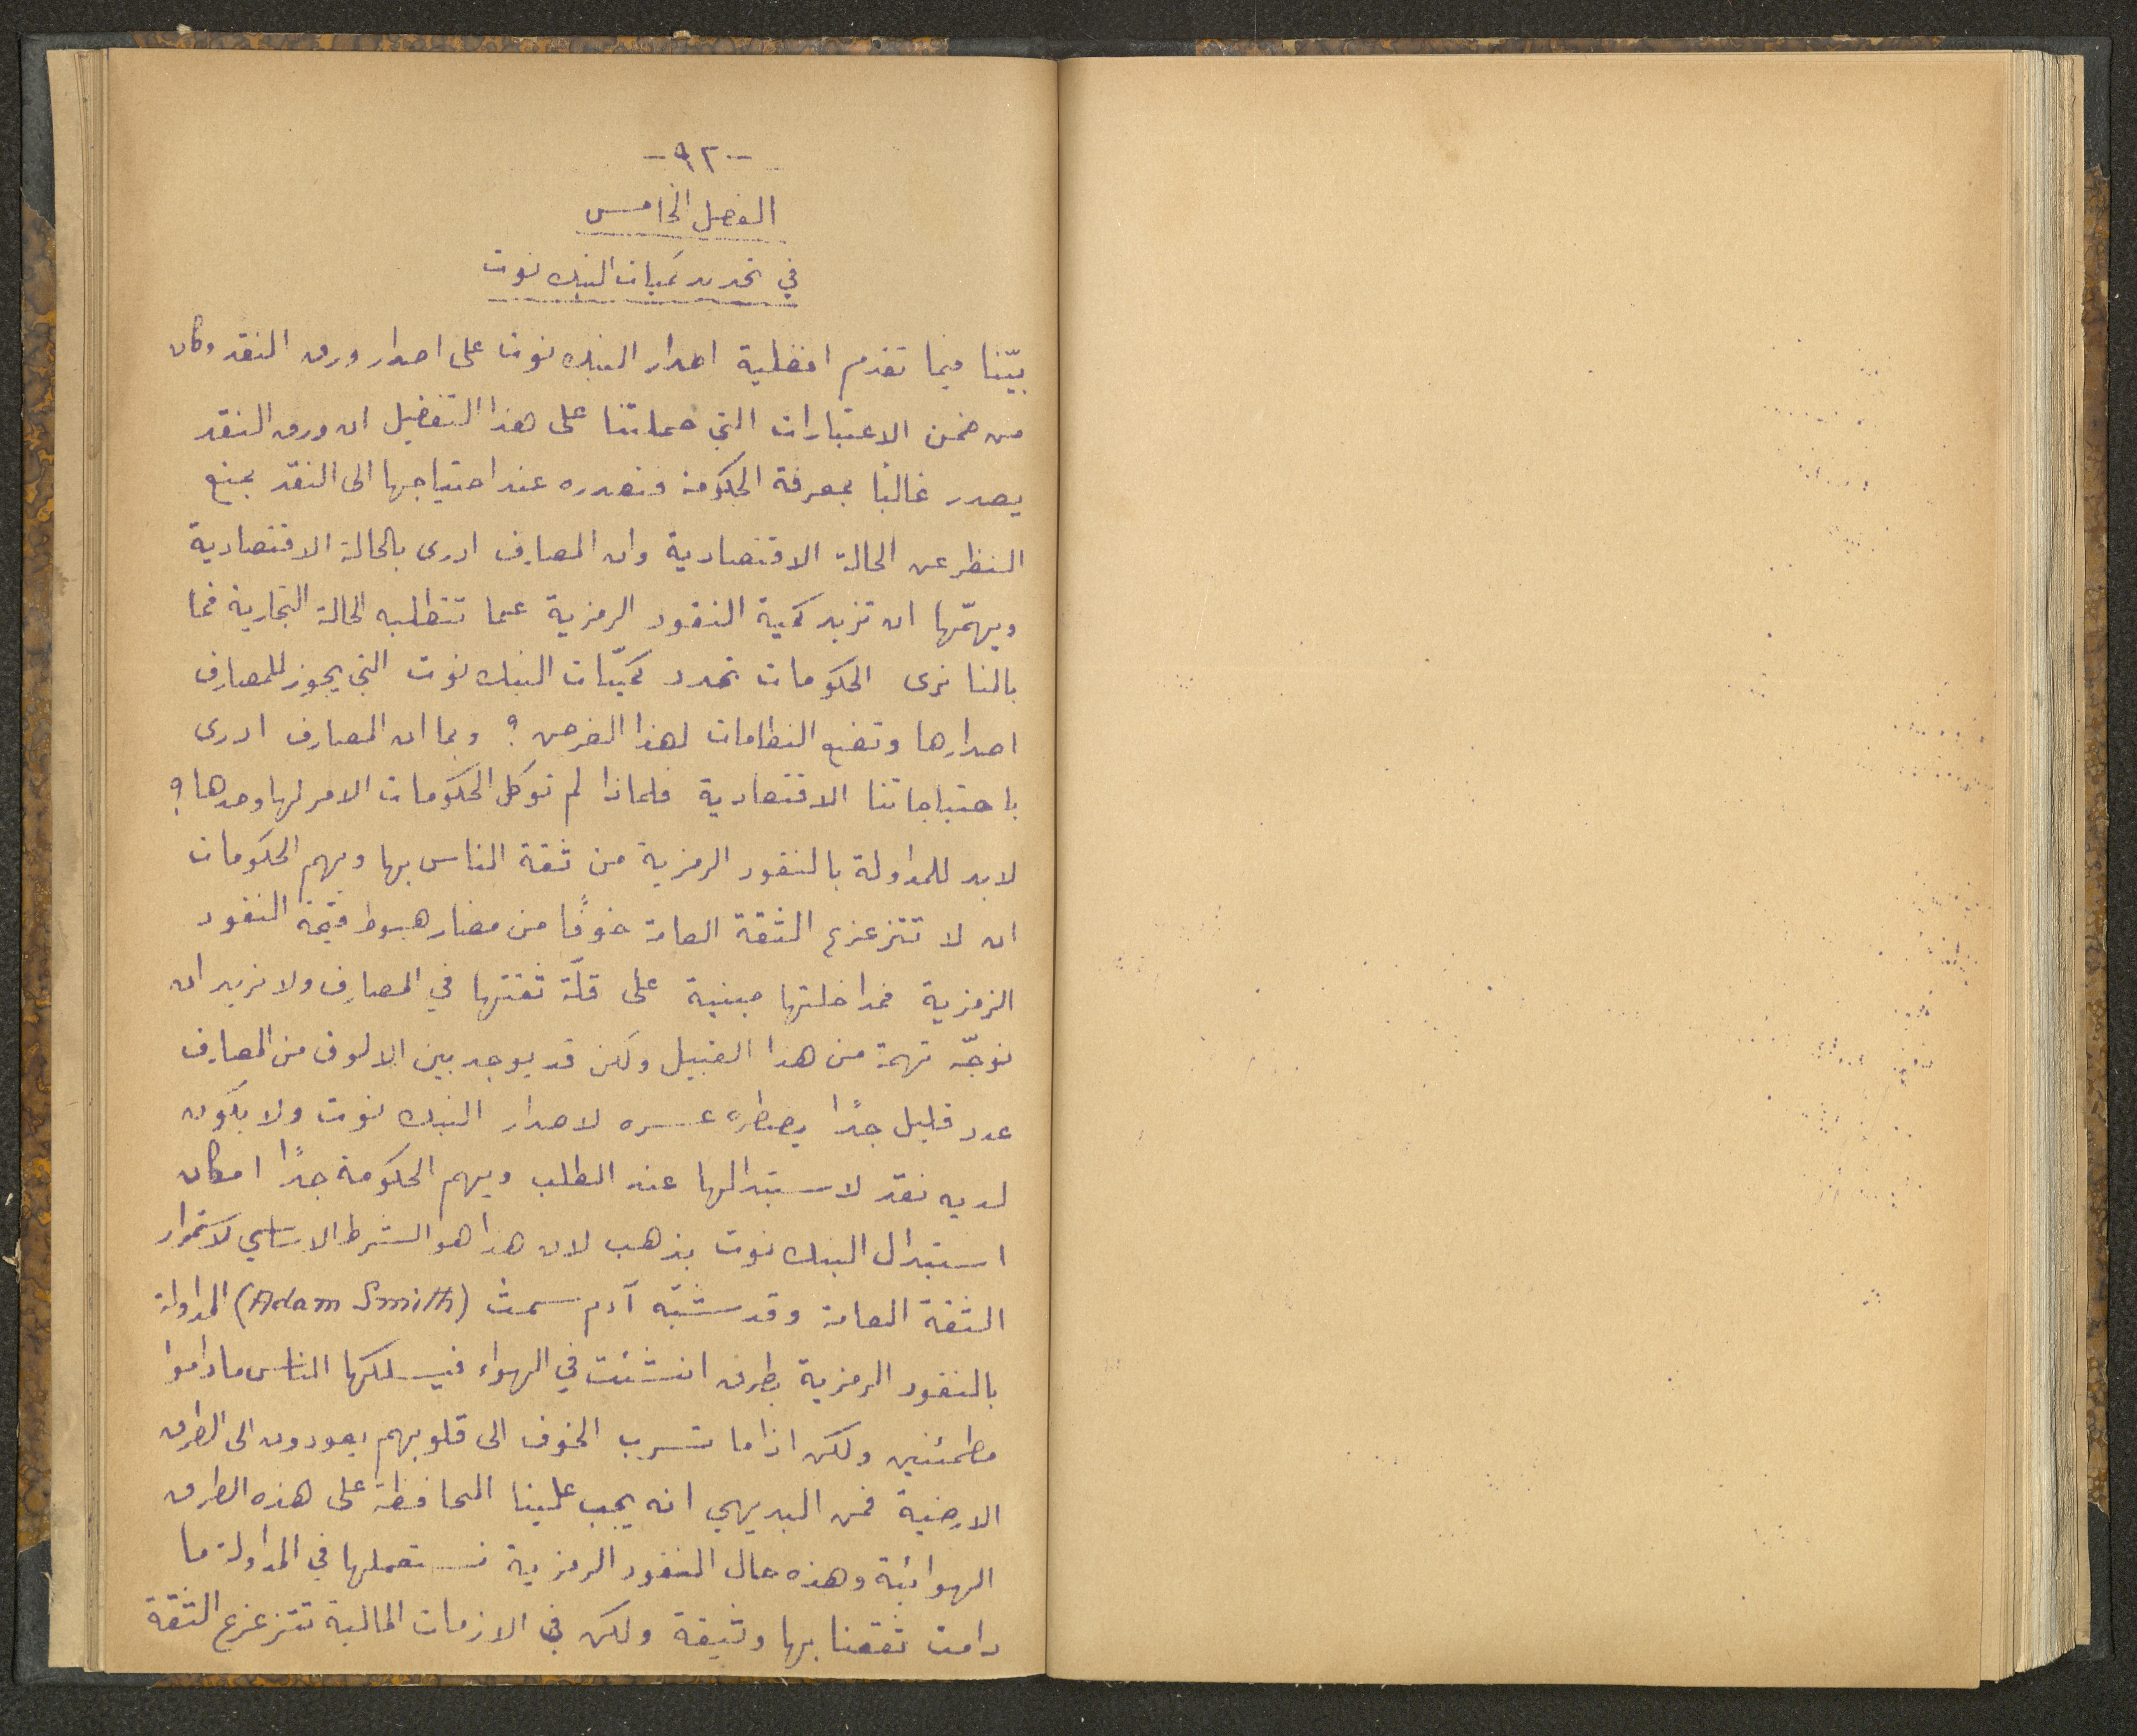 -٩٢-
الفصل الخامس
في تحديد كميات البنك نوت
بيّنا فيما تقدم افضلية اصدار البنك نوت على اصدار ورق النقد وكان
من ضمن الاعتبارات التي حملتنا على هذا التفضيل ان ورق النقد
يصدر غالبًا بمعرفة الحكومة فتصدره عند احتياجها الى النقد بمنع
النظر عن الحالة الاقتصادية وان المصارف ادرى بالحالة الاقتصادية
ويهمّها ان تزيد كمية النقود الرمزية عما تتطلبه الحالة التجارية فما
بالنا نرى الحكومات تحدد كميّات البنك نوت التي يجوز للمصارف
اصدارها وتضع النظامات لهذا الغرض؟ وبما ان المصارف ادرى
باحتياجاتنا الاقتصادية فلماذا لم توكل الحكومات الامر لها وحدها؟
لابد للمداولة بالنقود الرمزية من ثقة الناس بها ويهم الحكومات
ان لا تتزعزع الثقة العامة خوفًا من مضار هبوط قيمة النقود
الرمزية فمداخلتها مبنية على قلّة ثقتها في المصارف ولا نريد ان
نوجّه تهمة من هذا القبيل ولكن قد يوجد بين الالوف من المصارف
عدد قليل جدًا يضطره عسره لاصدار البنك نوت ولا يكون
لديه نقد لاستبدالها عند الطلب ويهم الحكومة جدًا امكان
استبدال البنك نوت بذهب لان هذا هو الشرط الاساسي لاستمرار
الثقة العامة وقد شبّه آدم سمث (Adam Smith) المداولة
بالنقود الرمزية بطرق انشئت في الهواء فيسلكها الناس ماداموا
مطمئنين ولكن اذا ما تسرب الخوف الى قلوبهم يعودون الى الطرق
الارضية فمن البديهي انه يجب علينا المحافظة على هذه الطرق
الهوائية وهذه حال النقود الرمزية نستعملها في المداولة ما
دامت ثقتنا بها وثيقة ولكن في الازمات المالية تتزعزع الثقة